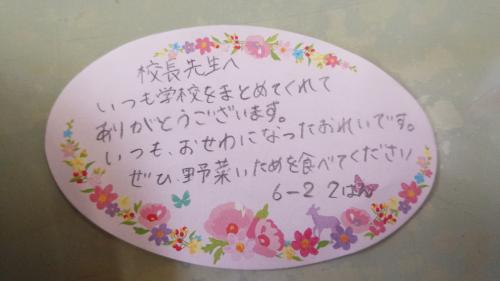 校長先生へ
いつも学校をまとめてくれて
ありがとうございます。
いつも、おせわになったおれいです。
ぜひ、野菜いためを食べてください
6-2 2はん